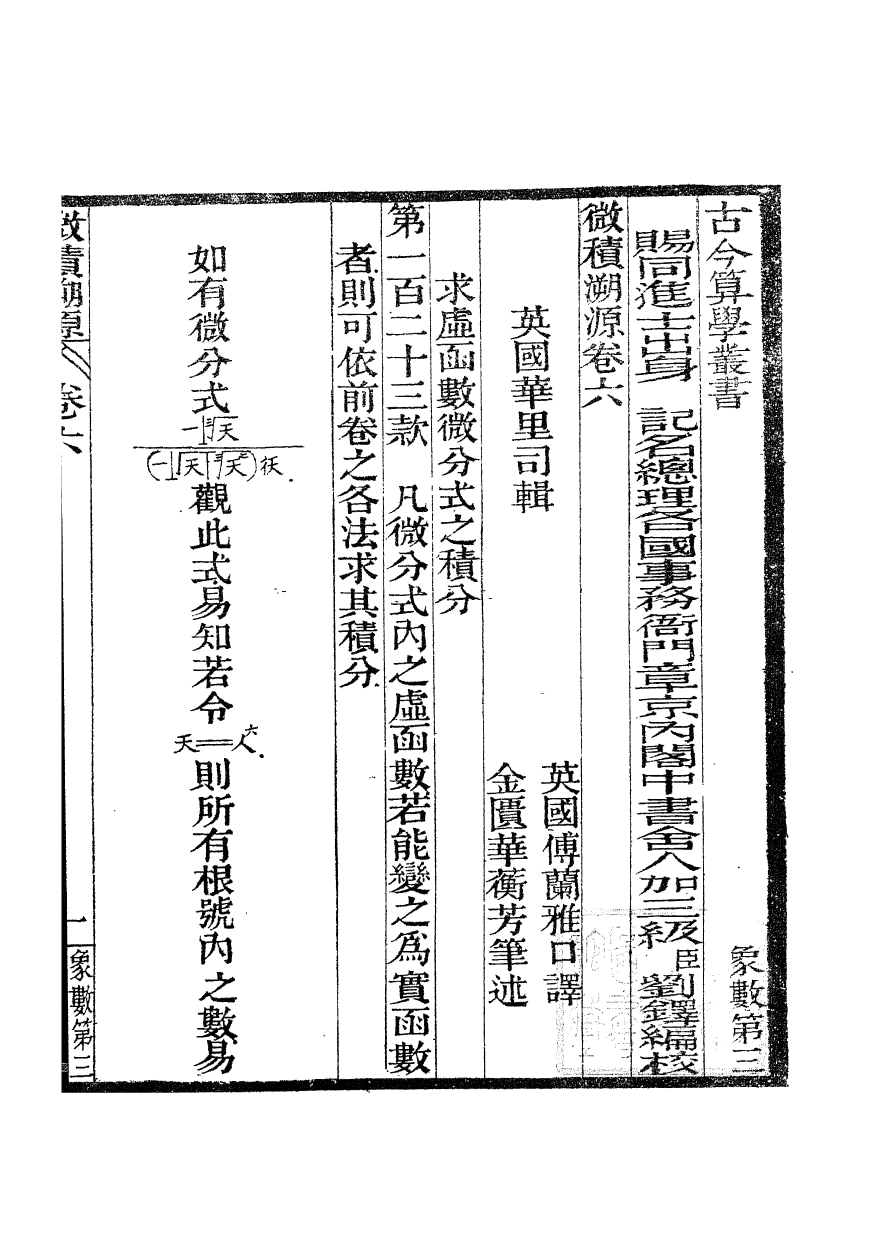 古今算學叢書
象數第三
賜同進士出身　記名總理各國事務衙門章京內閣中書舍人加三級臣劉鐸編校
微積溯源卷六
英國華里司輯
英國傅蘭雅口譯
金匱華蘅芳筆述
求虛函數微分式之積分
第一百二十三款　凡微分式內之虛函數若能變之爲實函數
者則可依前卷之各法求其積分
如有微分式
觀此式易知若令
天=人六
則所有根號內之數易
微積溯源
卷六
一
象數第三